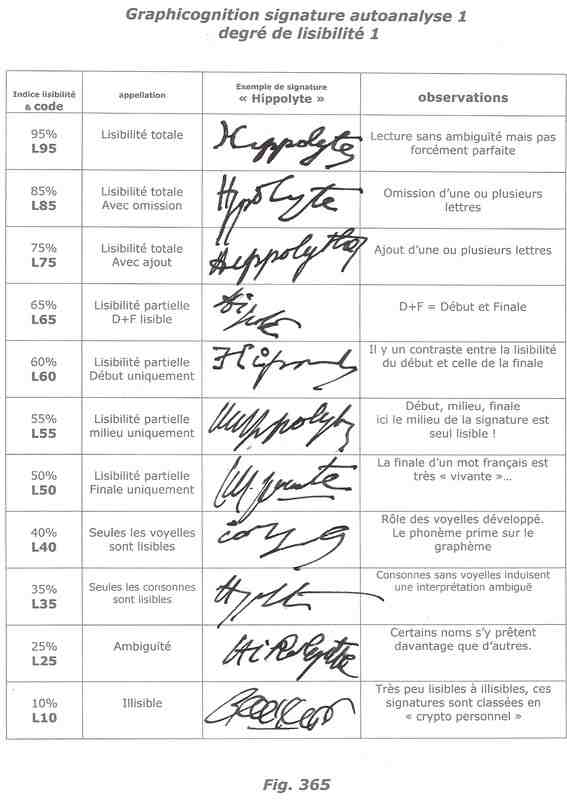 Graphicognition signature autoanalyse 1
degré de lisibilité 1
Indice lisibilité
& code
appellation
Exemple de signature
« Hippolyte »
observations
95%
L95
Lisibilité totale
Hippolyte
Lecture sans ambiguïté mais pas
forcément parfaite
85%
L85
Lisibilité totale
Avec omission
Hypolyte
Omission d'une ou plusieurs
lettres
75%
L75
Lisibilité totale
Avec ajout
Ajout d'une ou plusieurs lettres
65%
L65
Lisibilité partielle
D+F lisible
D+F = Début et Finale
60%
L60
Lisibilité partielle
Début uniquement
Il y un contraste entre la lisibilité
du début et celle de la finale
55%
L55
Lisibilité partielle
milieu uniquement
Début, milieu, finale
ici le milieu de la signature est
seul lisible !
50%
L50
Lisibilité partielle
Finale uniquement
La finale d'un mot français est
très « vivante »...
40%
L40
Seules les voyelles
sont lisibles
Rôle des voyelles développé.
Le phonème prime sur le
graphème
35%
L35
Seules les consonnes
sont lisibles
Consonnes sans voyelles induisent
une interprétation ambiguë
25%
L25
Ambiguité
Certains noms s'y prêtent
davantage que d'autres.
10%
L10
Illisible
Très peu lisibles à illisibles, ces
signatures sont classées en
« crypto personnel »
Fig. 365